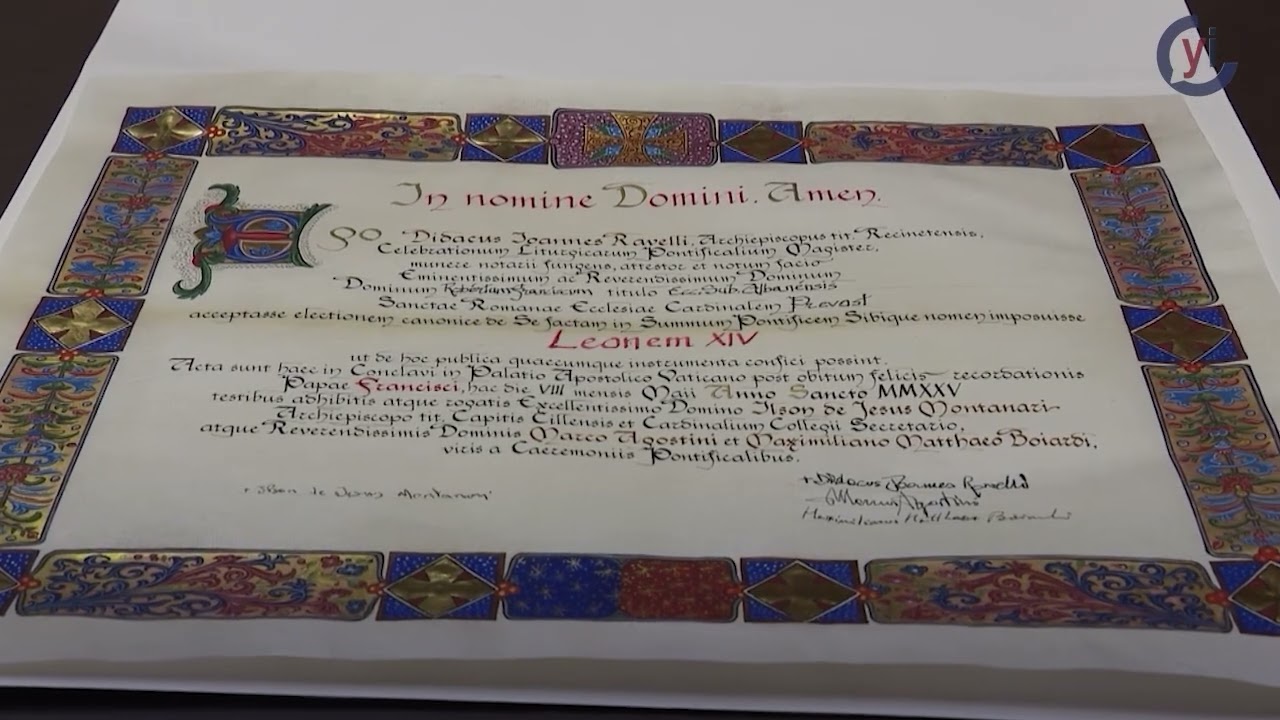 yi
In nomine Domini. Amen.
Ego Didacus Ioannes Ravelli, Archiepiscopus tit. Recinetensis,
Celebrationum Liturgicarum Pontificalium Magister,
munere notarii fungens, attestor et notum facio
Eminentissimum ac Reverendissimum Dominum
Dominum Robertum Franciscum titulo Eccl. Sub. Albanensis
Sanctae Romanae Ecclesiae Cardinalem Prevost
acceptasse electionem canonice de Se factam in Summum Pontificem Sibique nomen imposuisse
Leonem XIV
ut de hoc publica quaecumque instrumenta confici possint.
Acta sunt haec in Conclavi in Palatio Apostolico Vaticano post obitum felicis recordationis
Papae Francisci, hac die VIII mensis Maii Anno Sancto MMXXV
testibus adhibitis atque rogatis Excellentissimo Domino Ilson de Jesus Montanari
Archiepiscopo tit. Capitis Cillensis et Cardinalium Collegii Secretario,
atque Reverendissimis Dominis Marco Agostini et Maximiliano Matthaeo Boiardi,
viris a Caeremoniis Pontificalibus.
+ Ilson de Jesus Montanari
+ Didacus Ioannes Ravelli
Marcus Agostini
Maximilianus Matthaeus Boiardi